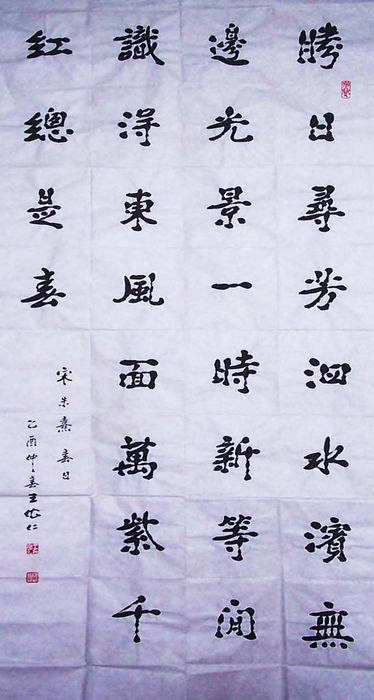 勝日尋芳泗水濱無
邊光景一時新等閒
識得東風面萬紫千
紅總是春
宋朱熹春日
乙酉仲春王仁